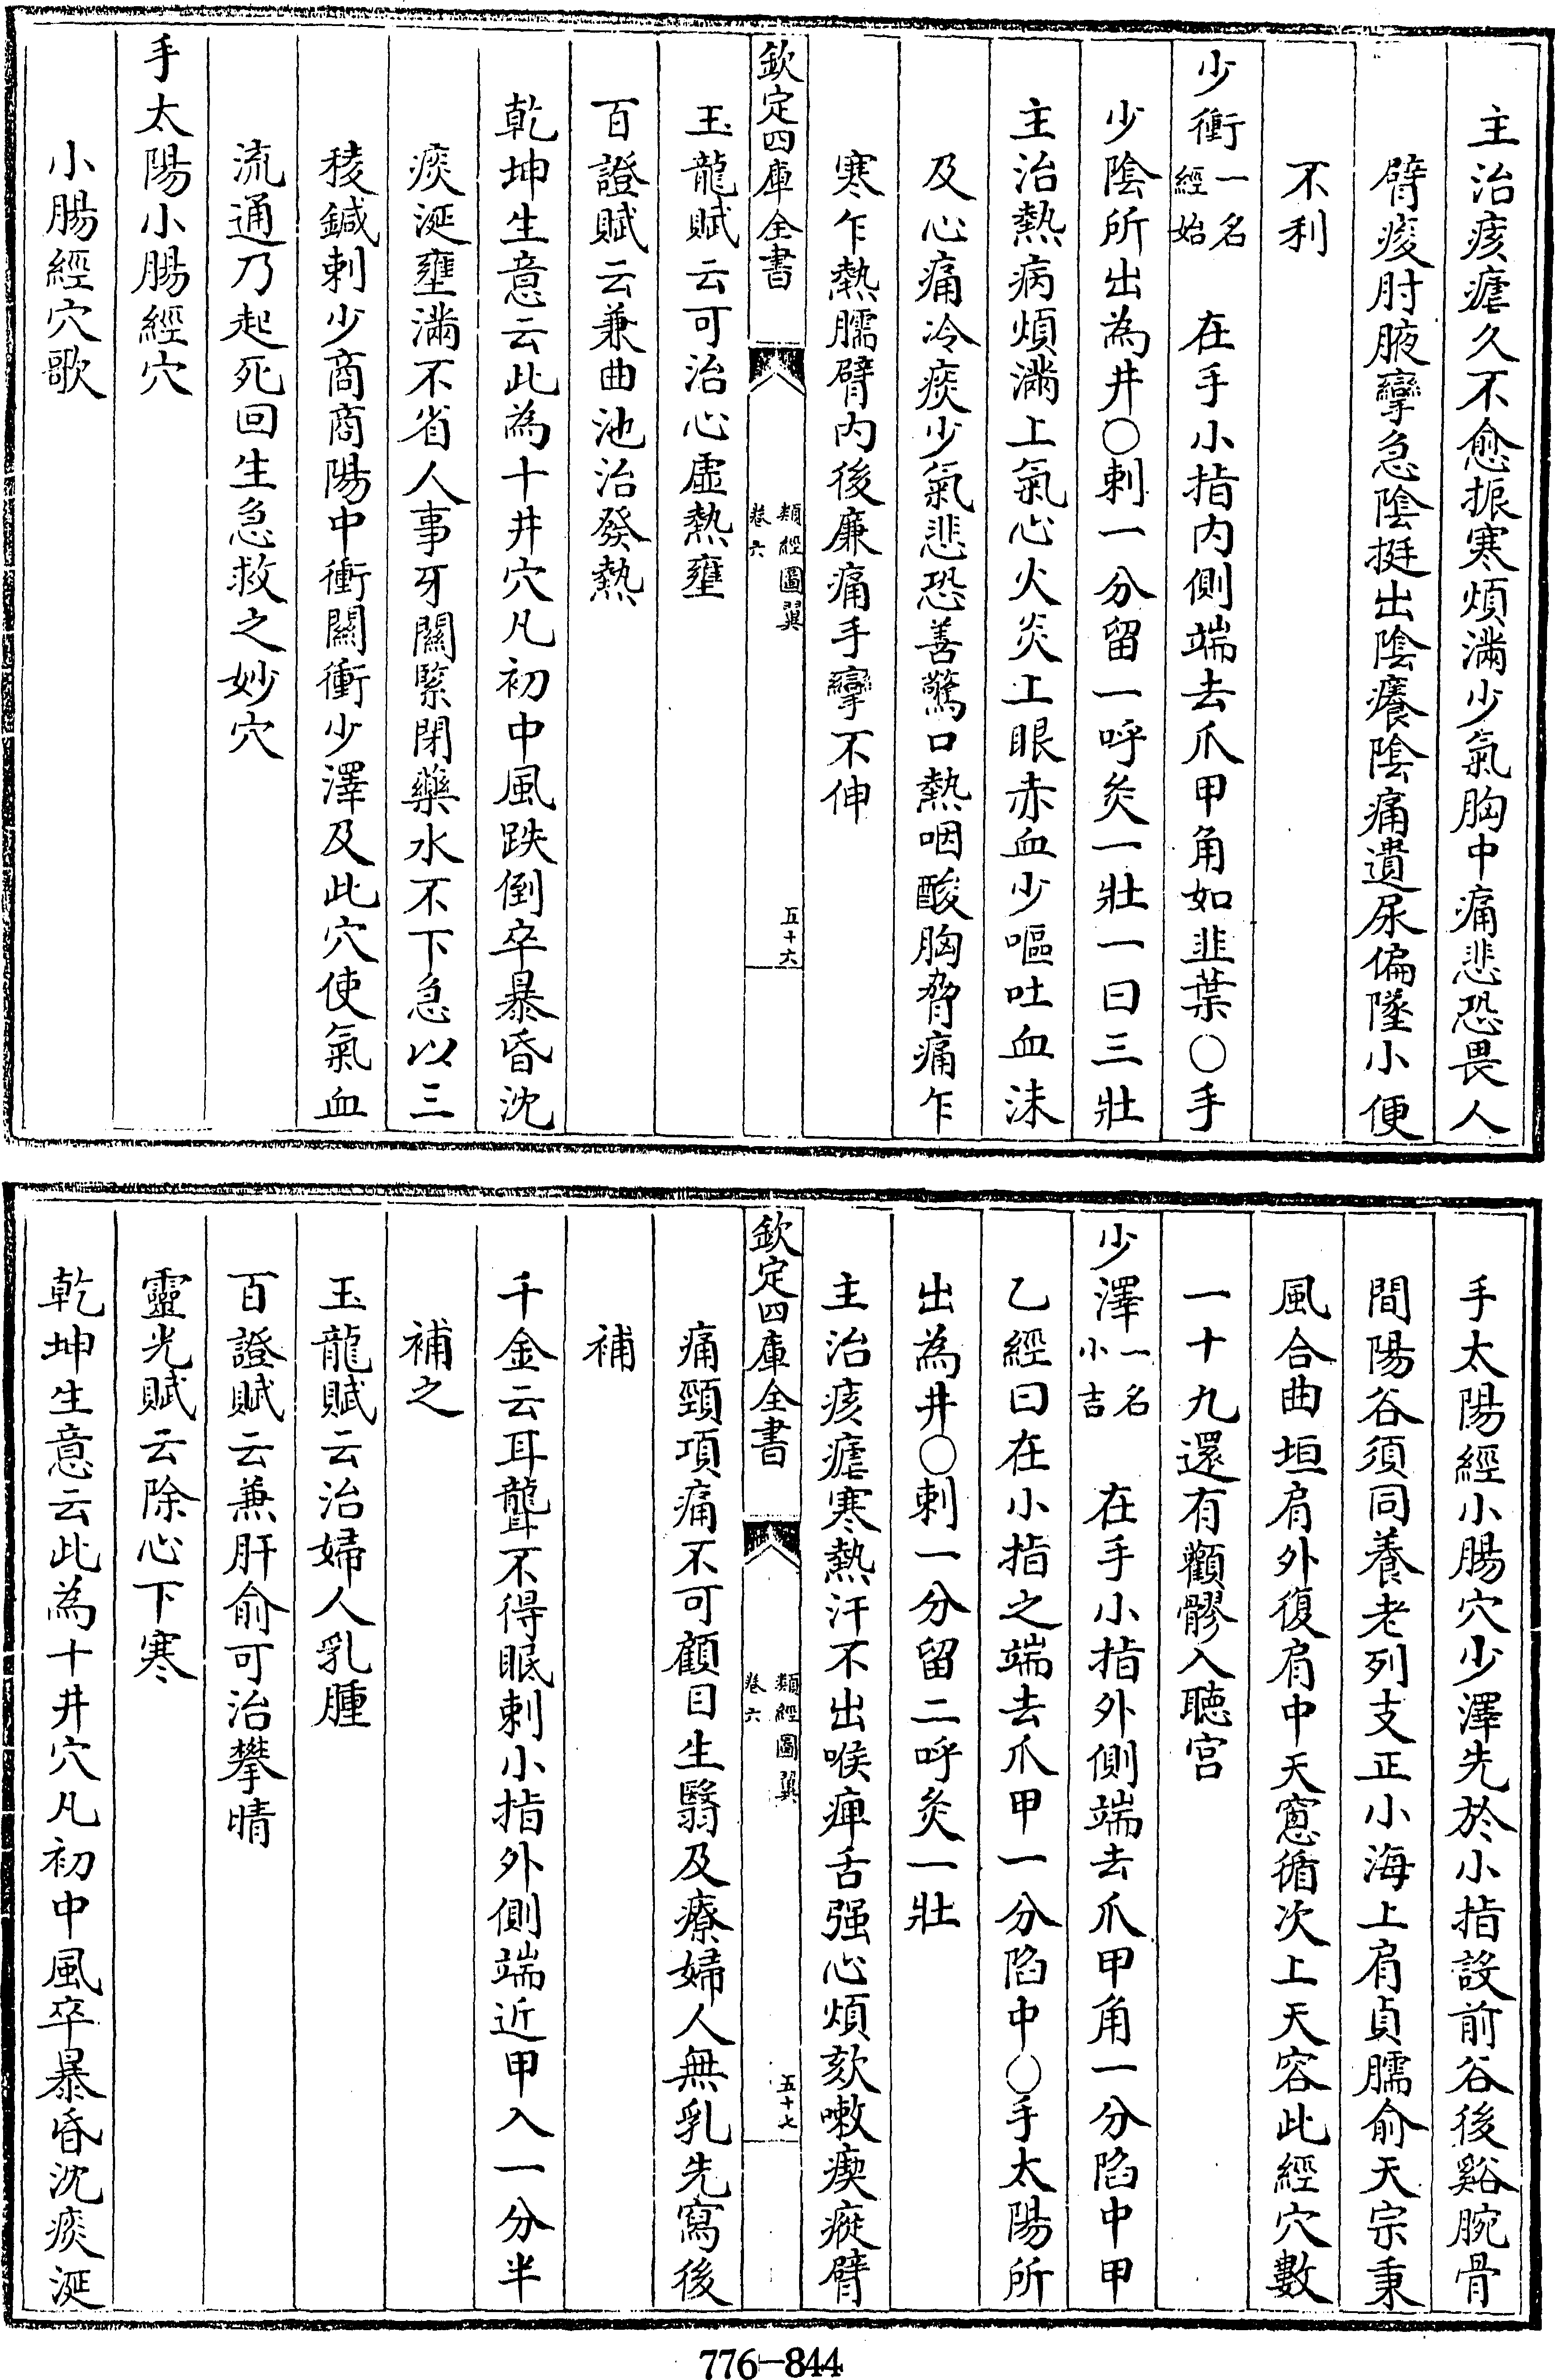 主治痎瘧久不愈振寒煩滿少氣胸中痛悲恐畏人
臂痠肘腋攣急陰挺出陰癢陰痛遺尿偏墜小便
不利
少衝一名經始 在手小指內側端去爪甲角如韭葉○手
少陰所出為井○刺一分留一呼灸一壯一曰三壯
主治熱病煩滿上氣心火炎上眼赤血少嘔吐血沫
及心痛冷痰少氣悲恐善驚口熱咽酸胸脅痛乍
寒乍熱臑臂內後廉痛手攣不伸
欽定四庫全書 類經圖翼卷六 五十六
玉龍賦云可治心虛熱壅
百證賦云兼曲池治發熱
乾坤生意云此為十井穴凡初中風跌倒卒暴昏沈
痰涎壅滿不省人事牙關緊閉藥水不下急以三
稜鍼刺少商商陽中衝關衝少澤及此穴使氣血
流通乃起死回生急救之妙穴
手太陽小腸經穴
小腸經穴歌
手太陽經小腸穴少澤先於小指設前谷後谿腕骨
間陽谷須同養老列支正小海上肩貞臑俞天宗秉
風合曲垣肩外復肩中天窻循次上天容此經穴數
一十九還有顴髎入聽宮
少澤一名小吉 在手小指外側端去爪甲角一分陷中甲
乙經曰在小指之端去爪甲一分陷中○手太陽所
出為井○刺一分留二呼灸一壯
主治痎瘧寒熱汗不出喉痺舌强心煩欬嗽瘈瘲臂
欽定四庫全書 類經圖翼卷六 五十七
痛頸項痛不可顧目生翳及療婦人無乳先寫後
補
千金云耳聾不得眠刺小指外側端近甲入一分半
補之
玉龍賦云治婦人乳腫
百證賦云兼肝俞可治攀睛
靈光賦云除心下寒
乾坤生意云此為十井穴凡初中風卒暴昏沈痰涎
776-844